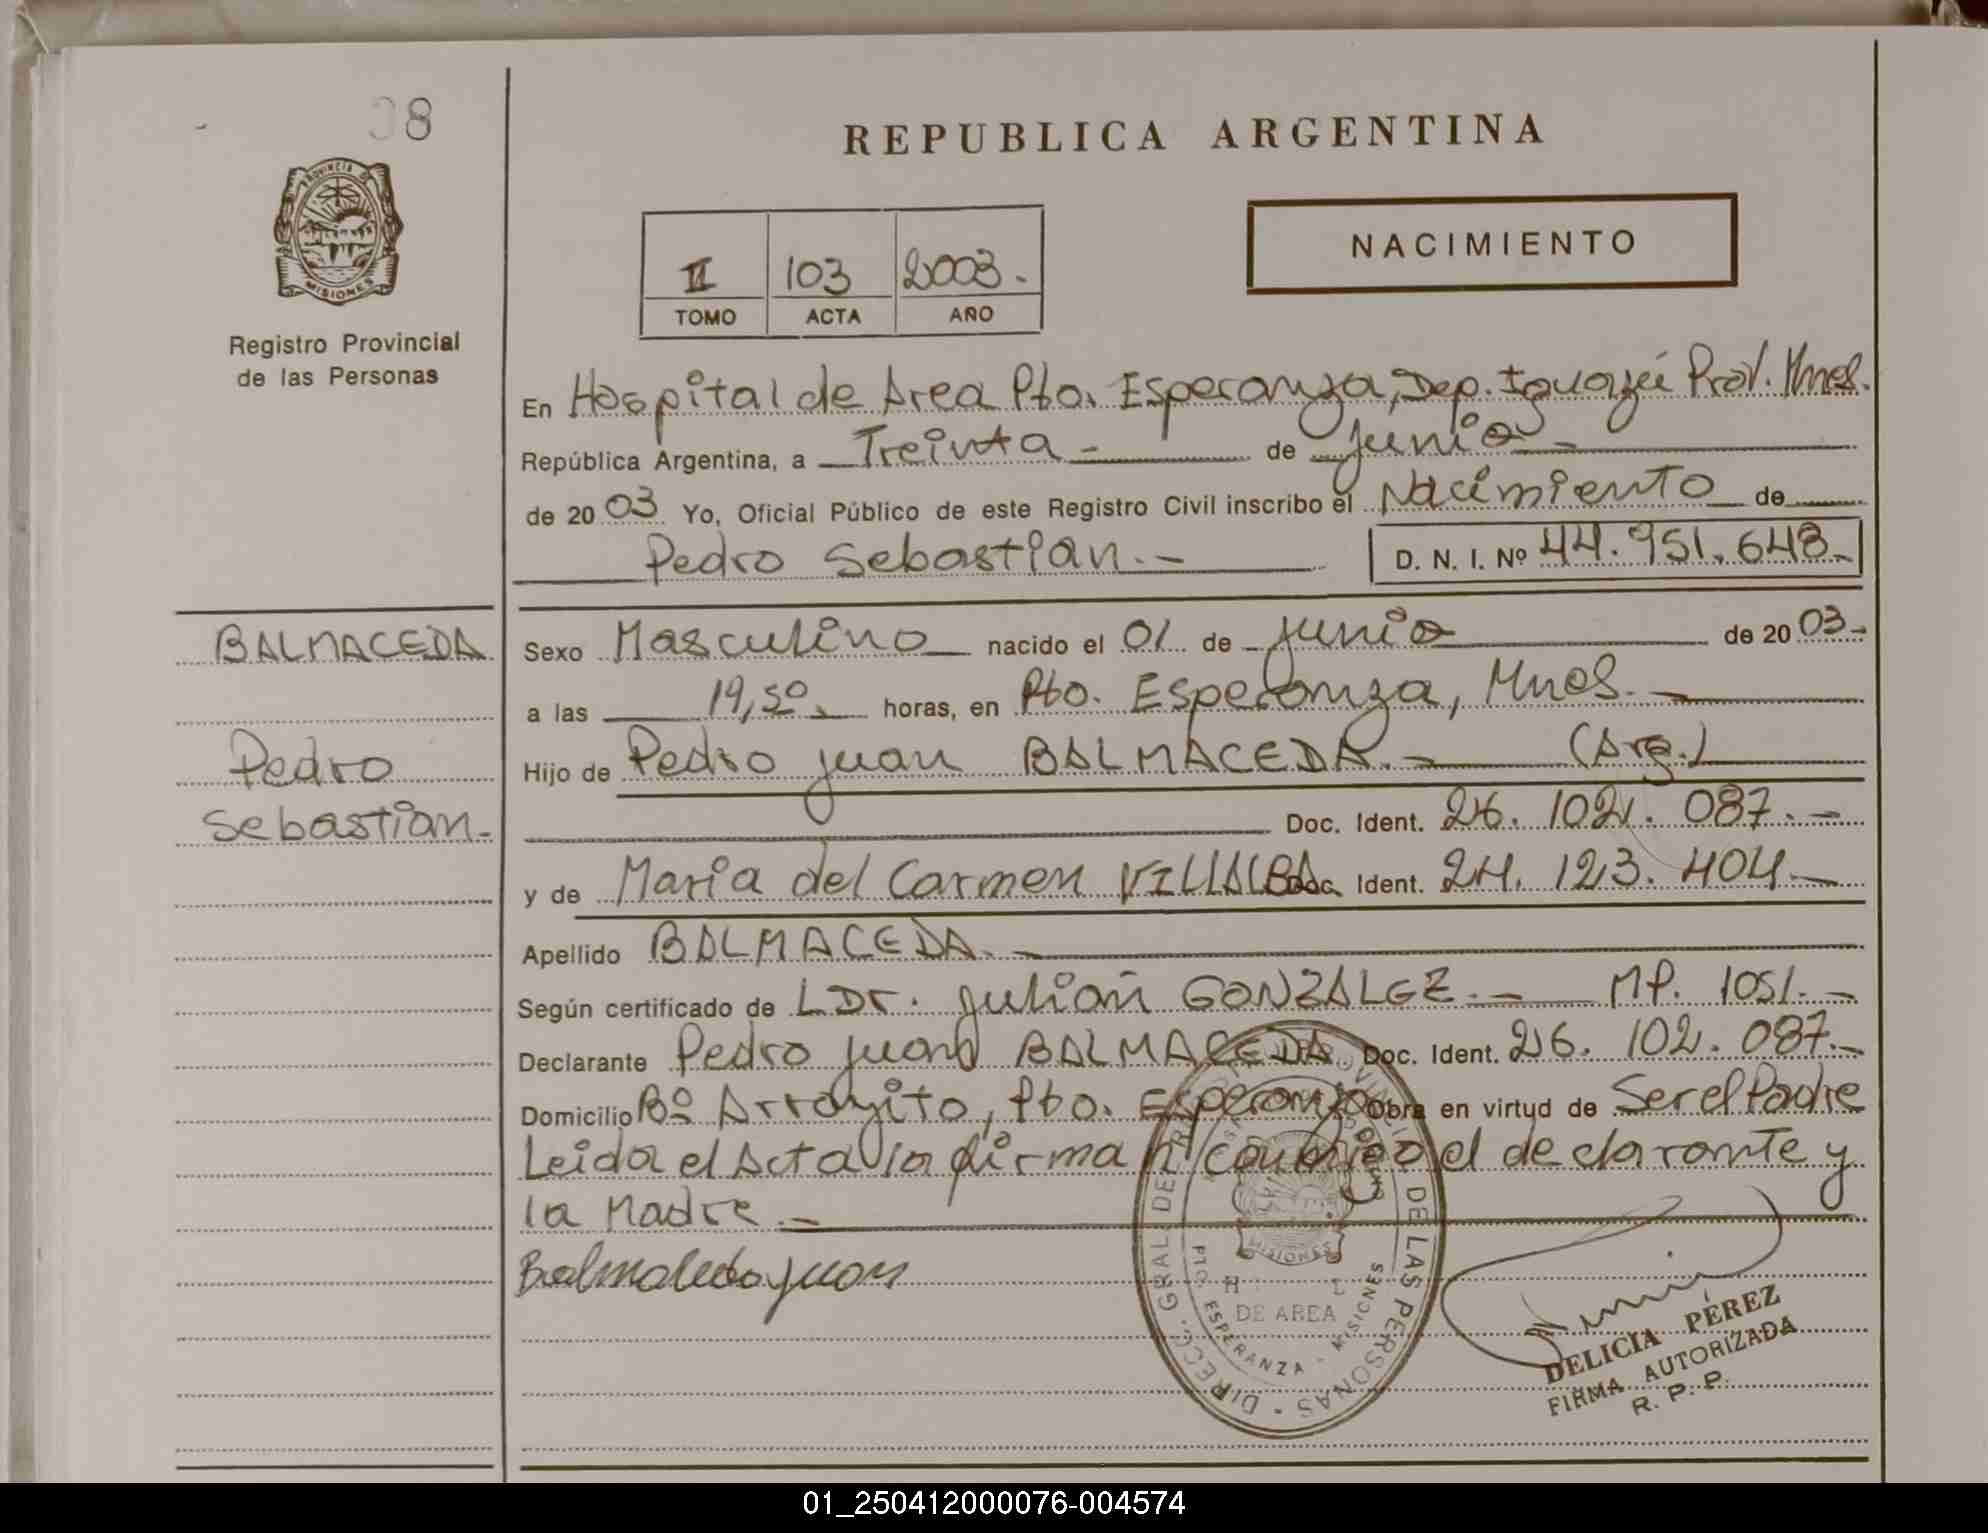 08
REPUBLICA ARGENTINA
PROVINCIA DE
MISIONES
NACIMIENTO
II 103 2003.
TOMO ACTA AÑO
Registro Provincial
de las Personas
En Hospital de Area Pto. Esperanza, Dep. Iguazú Prov. Mnes.
República Argentina, a Treinta - de junio -
de 2003 Yo, Oficial Público de este Registro Civil inscribo el Nacimiento de
Pedro Sebastian. - D. N. I. Nº 44.951.648-
BALMACEDA
Sexo Masculino nacido el 01 de junio de 2003-
a las 19,50 horas, en Pto. Esperanza, Mnes. -
Pedro
Hijo de Pedro juan BALMACEDA. - (Arg.)
Sebastian.-
Doc. Ident. 26. 102. 087. -
y de Maria del Carmen VILLALBA Doc. Ident. 24. 123. 404. -
Apellido BALMACEDA. -
Según certificado de L Dr. julian GONZALEZ. - MP. 1051. -
Declarante Pedro juan BALMACEDA Doc. Ident. 26. 102. 087. -
Domicilio Bº Arrayito, Pto. Esperanza Obra en virtud de Ser el Padre
Leida el Acta la firman conmigo el declarante y
la Madre. -
Balmaceda juan
DIRECC. GRAL. DEL REGISTRO PROVINCIAL DE LAS PERSONAS
MISIONES
DE AREA
PTO. ESPERANZA - MISIONES
DELICIA PÉREZ
FIRMA AUTORIZADA
R. P. P.
01_250412000076-004574